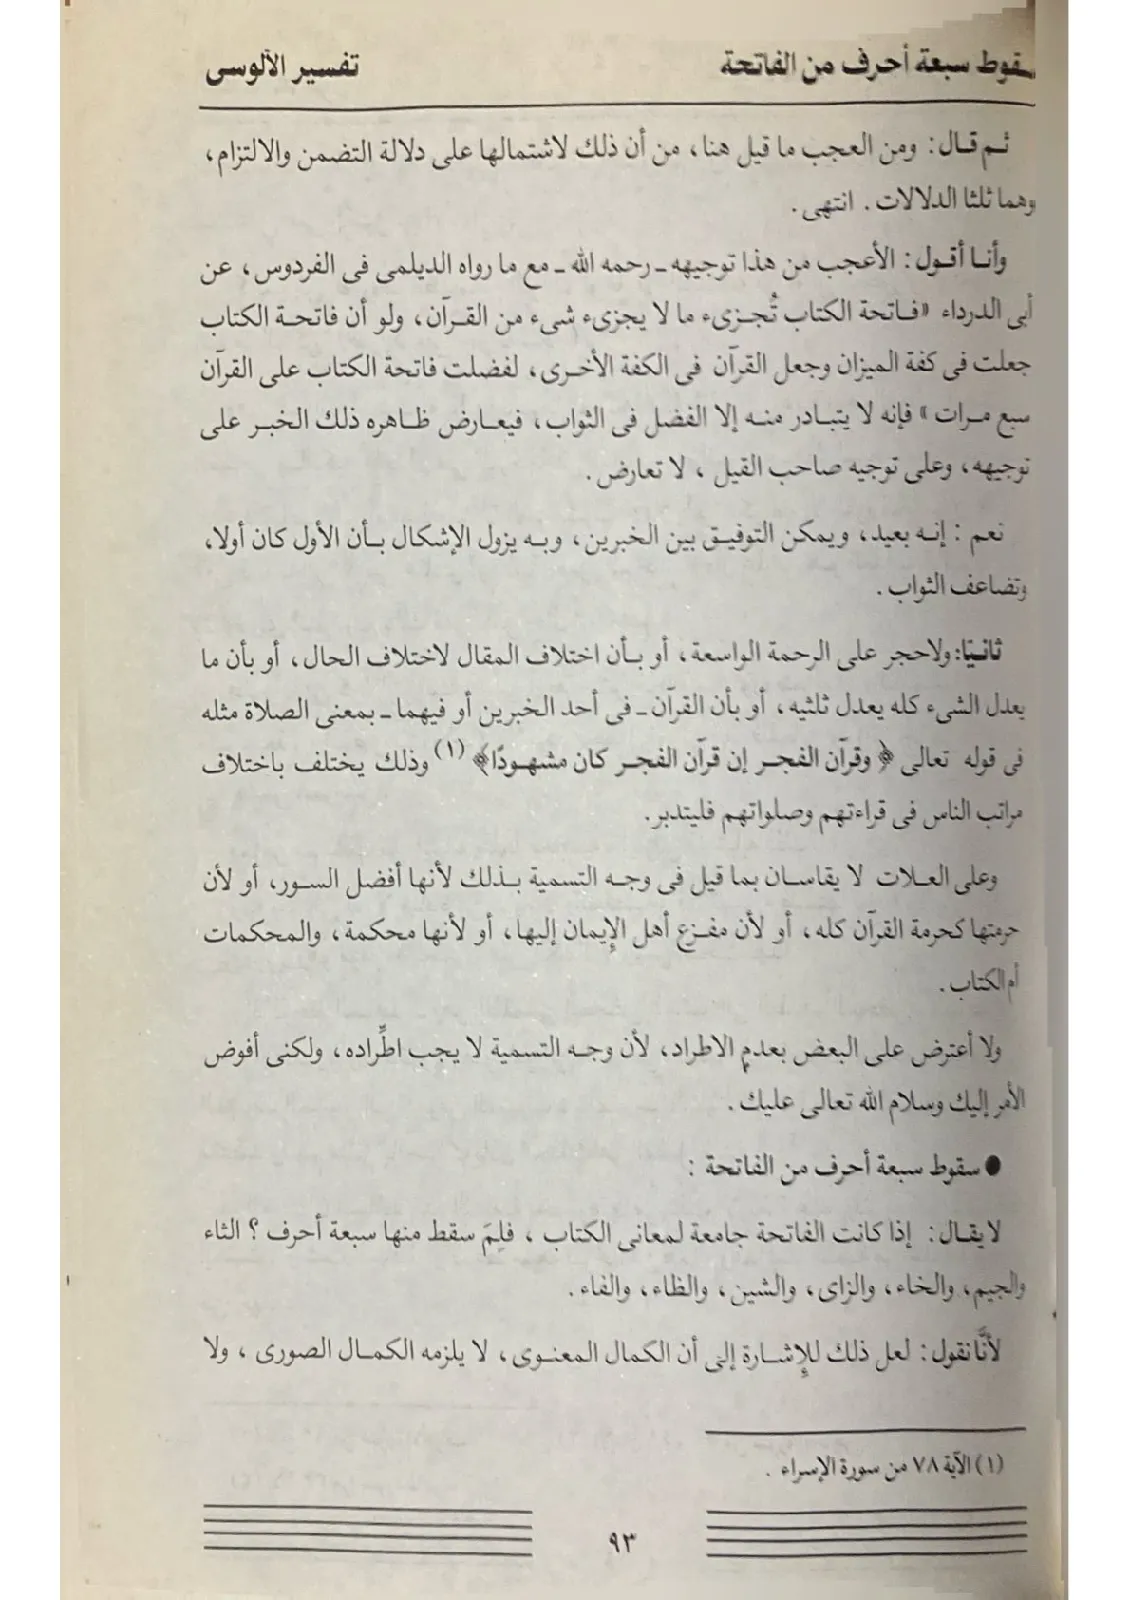 سقوط سبعة أحرف من الفاتحة
تفسير الآلوسى
ثـم قـال: ومن العجب ما قيل هنا، من أن ذلك لاشتمالها على دلالة التضمن والالتزام،
وهما ثلثا الدلالات. انتهى.
وأنـا أقـول: الأعجب من هذا توجيهه ـ رحمه الله ـ مع ما رواه الديلمى فى الفردوس، عن
أبى الدرداء «فـاتحة الكتاب تُجـزىء ما لا يجزىء شىء من القـرآن، ولو أن فاتحـة الكتاب
جعلت فى كفة الميزان وجعل القرآن فى الكفة الأخـرى، لفضلت فاتحة الكتاب على القرآن
سبع مـرات» فإنه لا يتبـادر منـه إلا الفضل فى الثواب، فيعـارض ظـاهره ذلـك الخبـر على
توجيهه، وعلى توجيه صاحب القيل، لا تعارض.
نعم: إنـه بعيد، ويمكن التوفيـق بين الخبرين، وبـه يزول الإشكال بـأن الأول كان أولا،
وتضاعف الثواب.
ثانـيًا: ولاحجر على الرحمة الواسعة، أو بـأن اختلاف المقال لاختلاف الحال، أو بأن ما
يعدل الشىء كله يعدل ثلثيه، أو بأن القرآن ـ فى أحد الخبرين أو فيهما ـ بمعنى الصلاة مثله
فى قوله تعالى ﴿وقرآن الفجـر إن قرآن الفجر كان مشهودًا﴾ (١) وذلك يختلف باختلاف
مراتب الناس فى قراءتهم وصلواتهم فليتدبر.
وعلى العـلات لا يقاسـان بما قيل فى وجـه التسمية بـذلك لأنها أفضل السور، أو لأن
حرمتها كحرمة القرآن كله، أو لأن مفـزع أهل الإيمان إليها، أو لأنها محكمة، والمحكمات
أم الكتاب.
ولا أعترض على البعض بعدم الاطراد، لأن وجـه التسمية لا يجب اطِّراده، ولكنى أفوض
الأمر إليك وسلام الله تعالى عليك.
● سقوط سبعة أحرف من الفاتحة:
لا يقـال: إذا كانت الفاتحة جامعة لمعانى الكتاب، فلِمَ سقط منها سبعة أحرف؟ الثاء
والجيم، والخاء، والزاى، والشين، والظاء، والفاء.
لأنَّا نقول: لعل ذلك للإشـارة إلى أن الكمال المعنـوى، لا يلزمه الكمـال الصورى، ولا
(١) الآية ٧٨ من سورة الإسراء.
٩٣